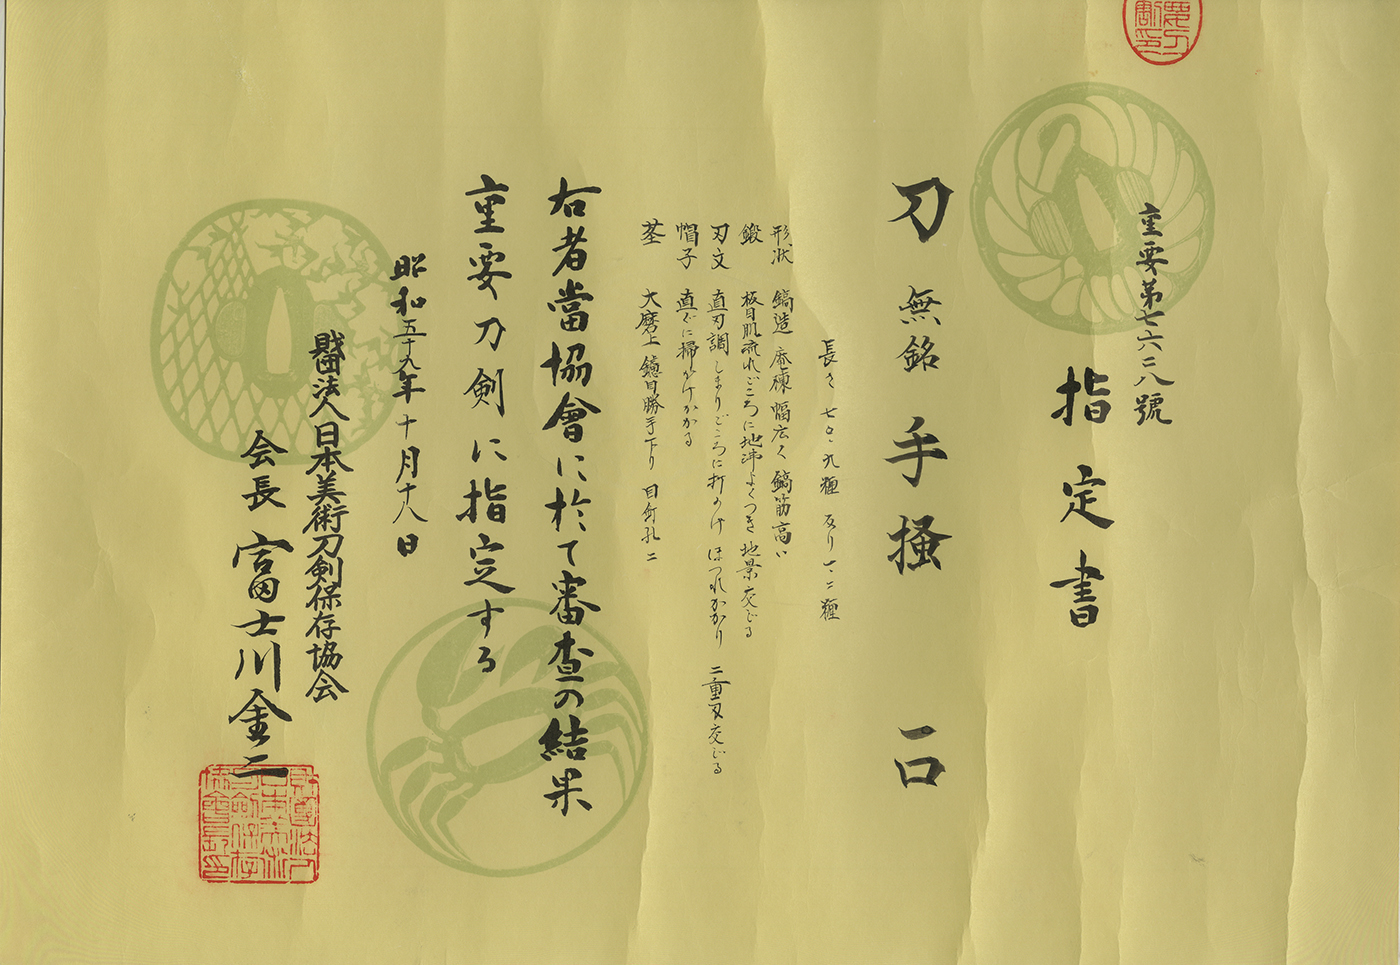 重要第七六二八號
指定書
刀 無銘 手掻 一口
長さ 七〇・九糎 反り 一・二糎
形状 鎬造 庵棟 幅広く 鎬筋高い
鍛 板目肌流れごころに地沸よくつき 地景交じる
刃文 直刃調 しまりごころに打のけ ほつれかかり 二重刃交じる
帽子 直ぐに掃かけかかる
茎 大磨上 鑢目勝手下り 目釘孔二
右者當協會に於て審査の結果
重要刀剣に指定する
昭和五十九年十月十八日
財団法人日本美術刀剣保存協会
会長 富士川金二